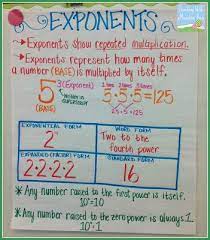 EXPONENTS
• Exponents show repeated multiplication.
• Exponents represent how many times
a number (BASE) is multiplied by itself.
5³ (Exponent) 1 time 2 times 3 times
5·5·5=125
WRITTEN IN
SUPERSCRIPT
(BASE)
EXPONENTIAL FORM
2⁴
WORD FORM
Two to the
fourth power
EXPANDED (FACTOR) FORM
2·2·2·2
STANDARD FORM
16
* Any number raised to the first power is itself.
10¹=10
* Any number raised to the zero power is always 1.
10⁰=1